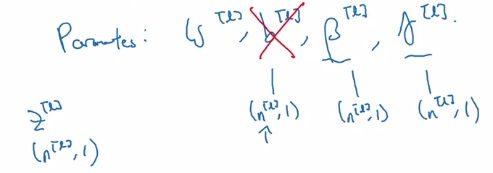 Parameters: W^[l], b^[l], β^[l], γ^[l].
z^[l]
(n^[l], 1) (n^[l], 1) (n^[l], 1)
(n^[l], 1)